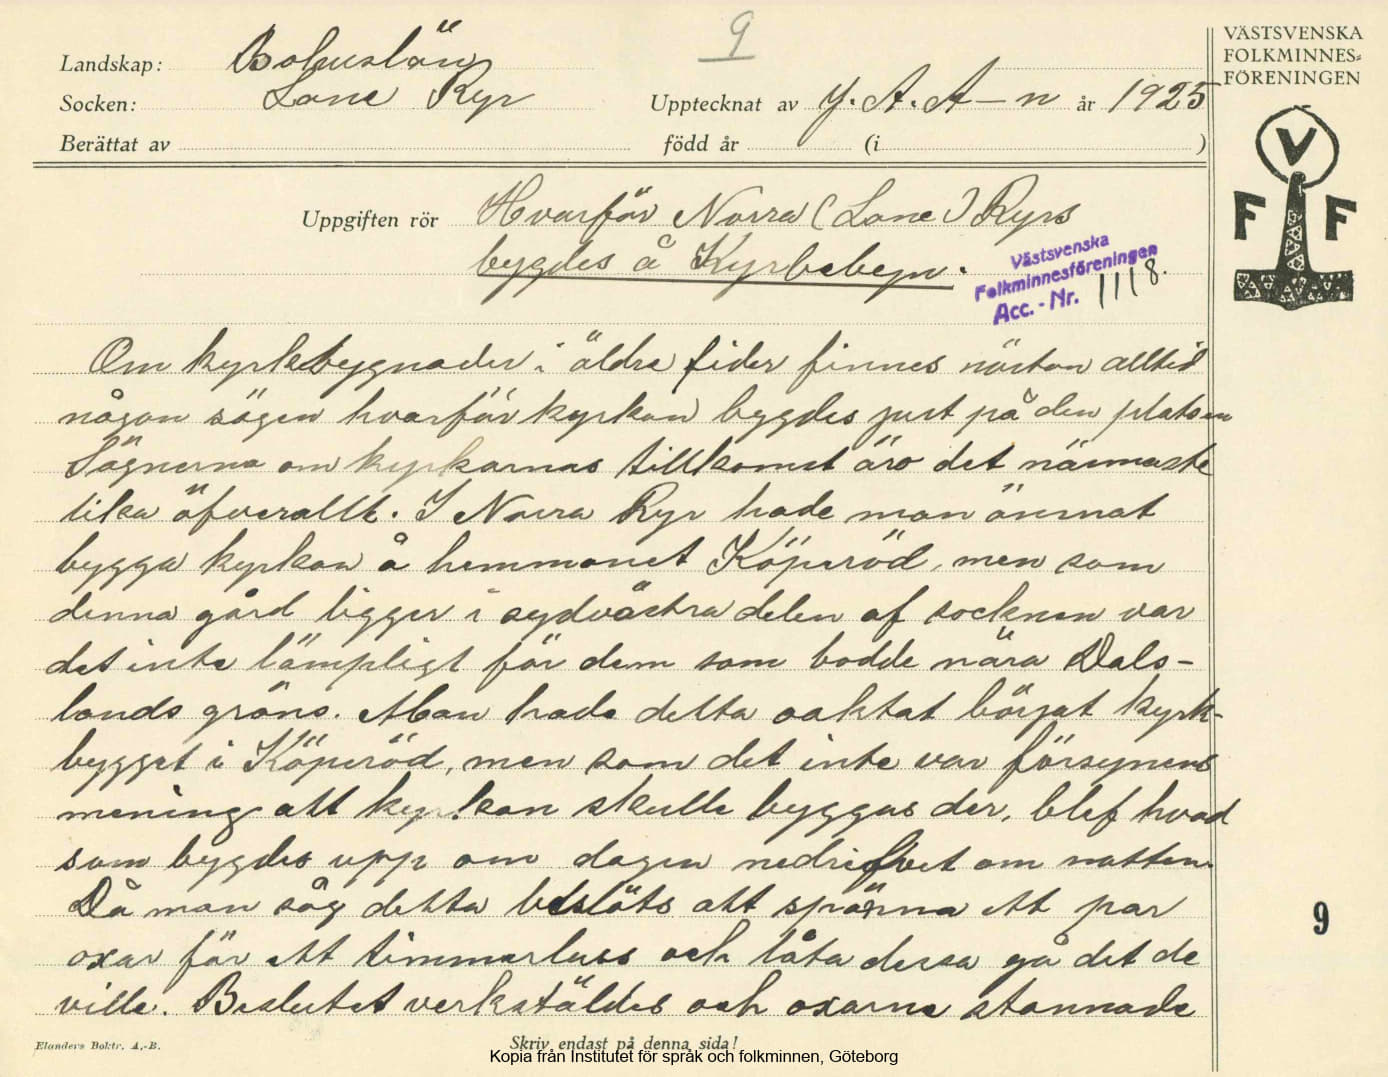 9
VÄSTSVENSKA
FOLKMINNES=
FÖRENINGEN
V
F F
Landskap: Bohuslän
Socken: Lane Ryr
Upptecknat av J. A. A–n år 1925
Berättat av född år (i )
Uppgiften rör Hvarför Norra (Lane) Ryrs
bygdes å Kyrkebyn.
Västsvenska
Folkminnesföreningen
Acc. - Nr. 1118.
Om kyrkebygnader i äldre tider finnes nästan alltid
någon sägen hvarför kyrkan bygdes just på den platsen
Sägnerna om kyrkornas tillkomst äro det närmaste
lika öfverallt. I Norra Ryr hade man ämnat
bygga kyrkan å hemmanet Köperöd, men som
denna gård ligger i sydvästra delen af socknen var
det inte lämpligt för dem som bodde nära Dals-
lands gräns. Man hade detta oaktat börjat kyrk-
bygget i Köperöd, men som det inte var försynens
mening att kyrkan skulle byggas der, blef hvad
som bygdes upp om dagen nedrifvet om natten.
Då man såg detta beslöts att spänna ett par
oxar för ett timmerlass och låta dessa gå det de
ville. Beslutet verkställdes och oxarne stannade
9
Elanders Boktr. A.-B.
Skriv endast på denna sida!
Kopia från Institutet för språk och folkminnen, Göteborg